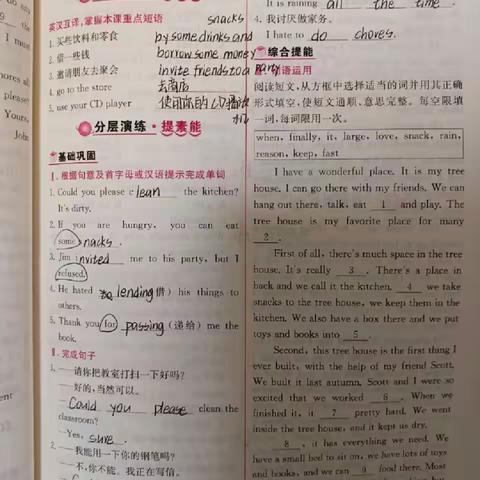 英汉互译,掌握本课重点短语
snacks
1. 买些饮料和零食 by some drinks and
2. 借一些钱 borrow some money
3. 邀请朋友去聚会 invite friends to a party
4. go to the store 去商店
5. use your CD player 使用你的CD播放机
分层演练·提素能
基础巩固
Ⅰ. 根据句意及首字母或汉语提示完成单词
1. Could you please c lean the kitchen?
It's dirty.
2. If you are hungry, you can eat
some snacks.
3. Jim invited me to his party, but I
refused.
4. He hated lending(借) his things to
others.
5. Thank you for passing(递给) me the
book.
Ⅱ. 完成句子
1. ——请你把教室打扫一下好吗?
——好的,当然可以。
—Could you please clean the
classroom?
—Yes, sure.
2. ——我能用一下你的钢笔吗?
——不,你不能。我正在写信。
It is raining all the time.
4. 我讨厌做家务。
I hate to do chores.
综合提能
语运用
阅读短文,从方框中选择适当的词并用其正确
形式填空,使短文通顺、意思完整。每空限填
一词,每词限用一次。
when, finally, it, large, love, snack, rain,
reason, keep, fast
I have a wonderful place. It is my tree
house. I can go there with my friends. We can
hang out there, talk, eat 1 and play. The
tree house is my favorite place for many
2.
First of all, there's much space in the tree
house. It's really 3. There's a place in
back and we call it the kitchen. 4 we take
snacks to the tree house, we keep them in the
kitchen. We also have a box there and we put
toys and books into 5.
Second, this tree house is the first thing I
ever built, with the help of my friend Scott.
We built it last autumn. Scott and I were so
excited that we worked 6. When we
finished it, it 7 pretty hard. We went
inside the tree house, and it kept us dry.
8, it has everything we need. We
have a small bed to sit on, we have lots of toys
and books, and we can 9 food there. Most